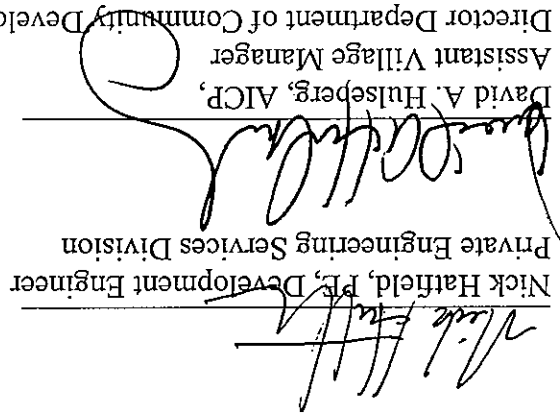 Nick Hatfield, PE, Development Engineer
Private Engineering Services Division
David A. Hulseberg, AICP,
Assistant Village Manager
Director Department of Community Develo